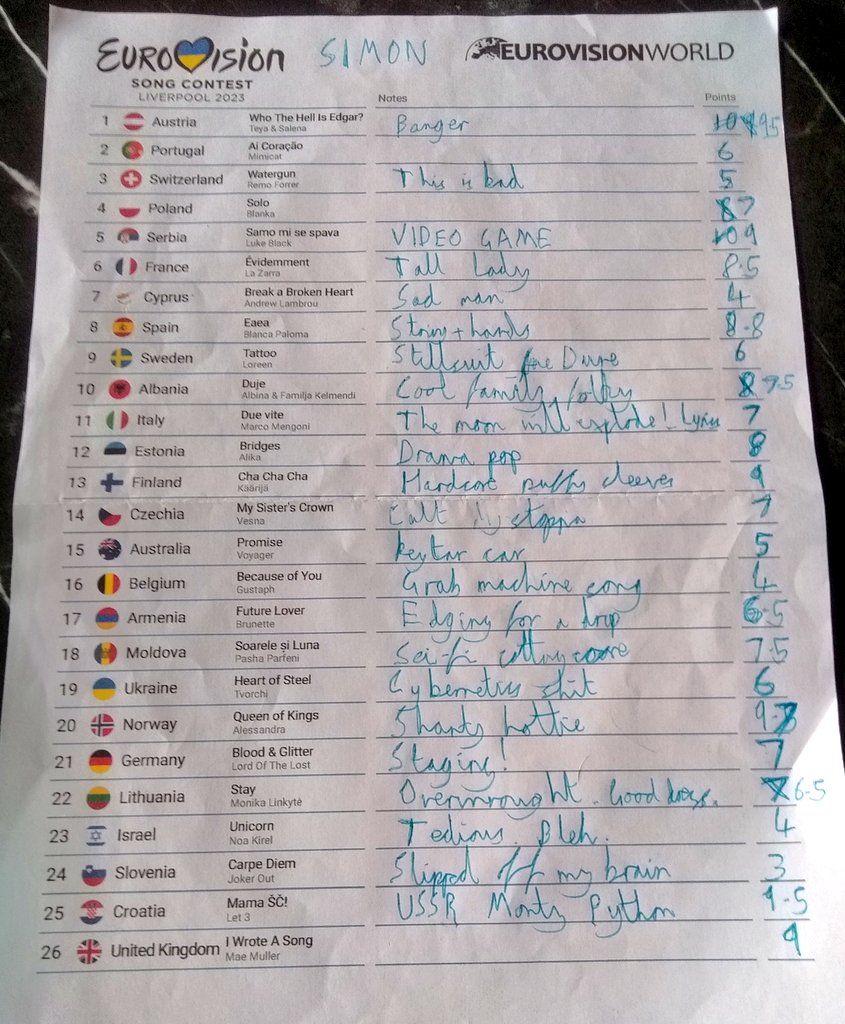 EUROVISION SIMON EUROVISIONWORLD
SONG CONTEST
LIVERPOOL 2023
Notes Points
1 Austria Who The Hell Is Edgar? Banger 9.5
Teya & Salena
2 Portugal Ai Coração 6
Mimicat
3 Switzerland Watergun This is bad 5
Remo Forrer
4 Poland Solo 7
Blanka
5 Serbia Samo mi se spava VIDEO GAME 9
Luke Black
6 France Évidemment Tall Lady 8.5
La Zarra
7 Cyprus Break a Broken Heart Sad man 4
Andrew Lambrou
8 Spain Eaea String + hands 8.8
Blanca Paloma
9 Sweden Tattoo Stillsuit Dune 6
Loreen
10 Albania Duje Cool family, folky 7.5
Albina & Familja Kelmendi
11 Italy Due vite The moon will explode! Lyrics 7
Marco Mengoni
12 Estonia Bridges Drama pop 8
Alika
13 Finland Cha Cha Cha Hardcore puffy sleeves 9
Käärijä
14 Czechia My Sister's Crown Cult 7
Vesna
15 Australia Promise Keytar car 5
Voyager
16 Belgium Because of You Grab machine song 4
Gustaph
17 Armenia Future Lover Edging for a drop 6.5
Brunette
18 Moldova Soarele și Luna Sci-fi 7.5
Pasha Parfeni
19 Ukraine Heart of Steel Cybernetics shit 6
Tvorchi
20 Norway Queen of Kings Shanty hottie
Alessandra
21 Germany Blood & Glitter Staging! 7
Lord Of The Lost
22 Lithuania Stay Overwrought. Good 6.5
Monika Linkytė
23 Israel Unicorn Tedious. Bleh. 4
Noa Kirel
24 Slovenia Carpe Diem Slipped off my brain 3
Joker Out
25 Croatia Mama ŠČ! USSR Monty Python 9.5
Let 3
26 United Kingdom I Wrote A Song 9
Mae Muller